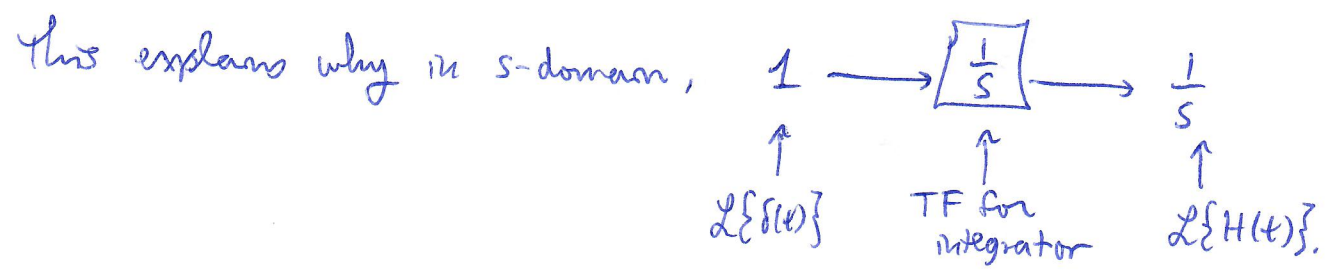 This explains why in s-domain, 1 → 1/s → 1/s
↑ ↑ ↑
ℒ{δ(t)} TF for integrator ℒ{H(t)}.